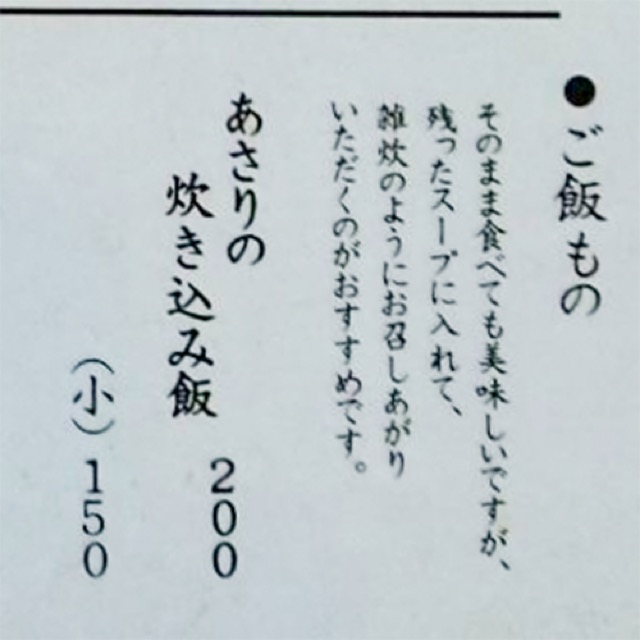 ●ご飯もの
そのまま食べても美味しいですが、
残ったスープに入れて、
雑炊のようにお召しあがり
いただくのがおすすめです。
あさりの
炊き込み飯 200
（小）150